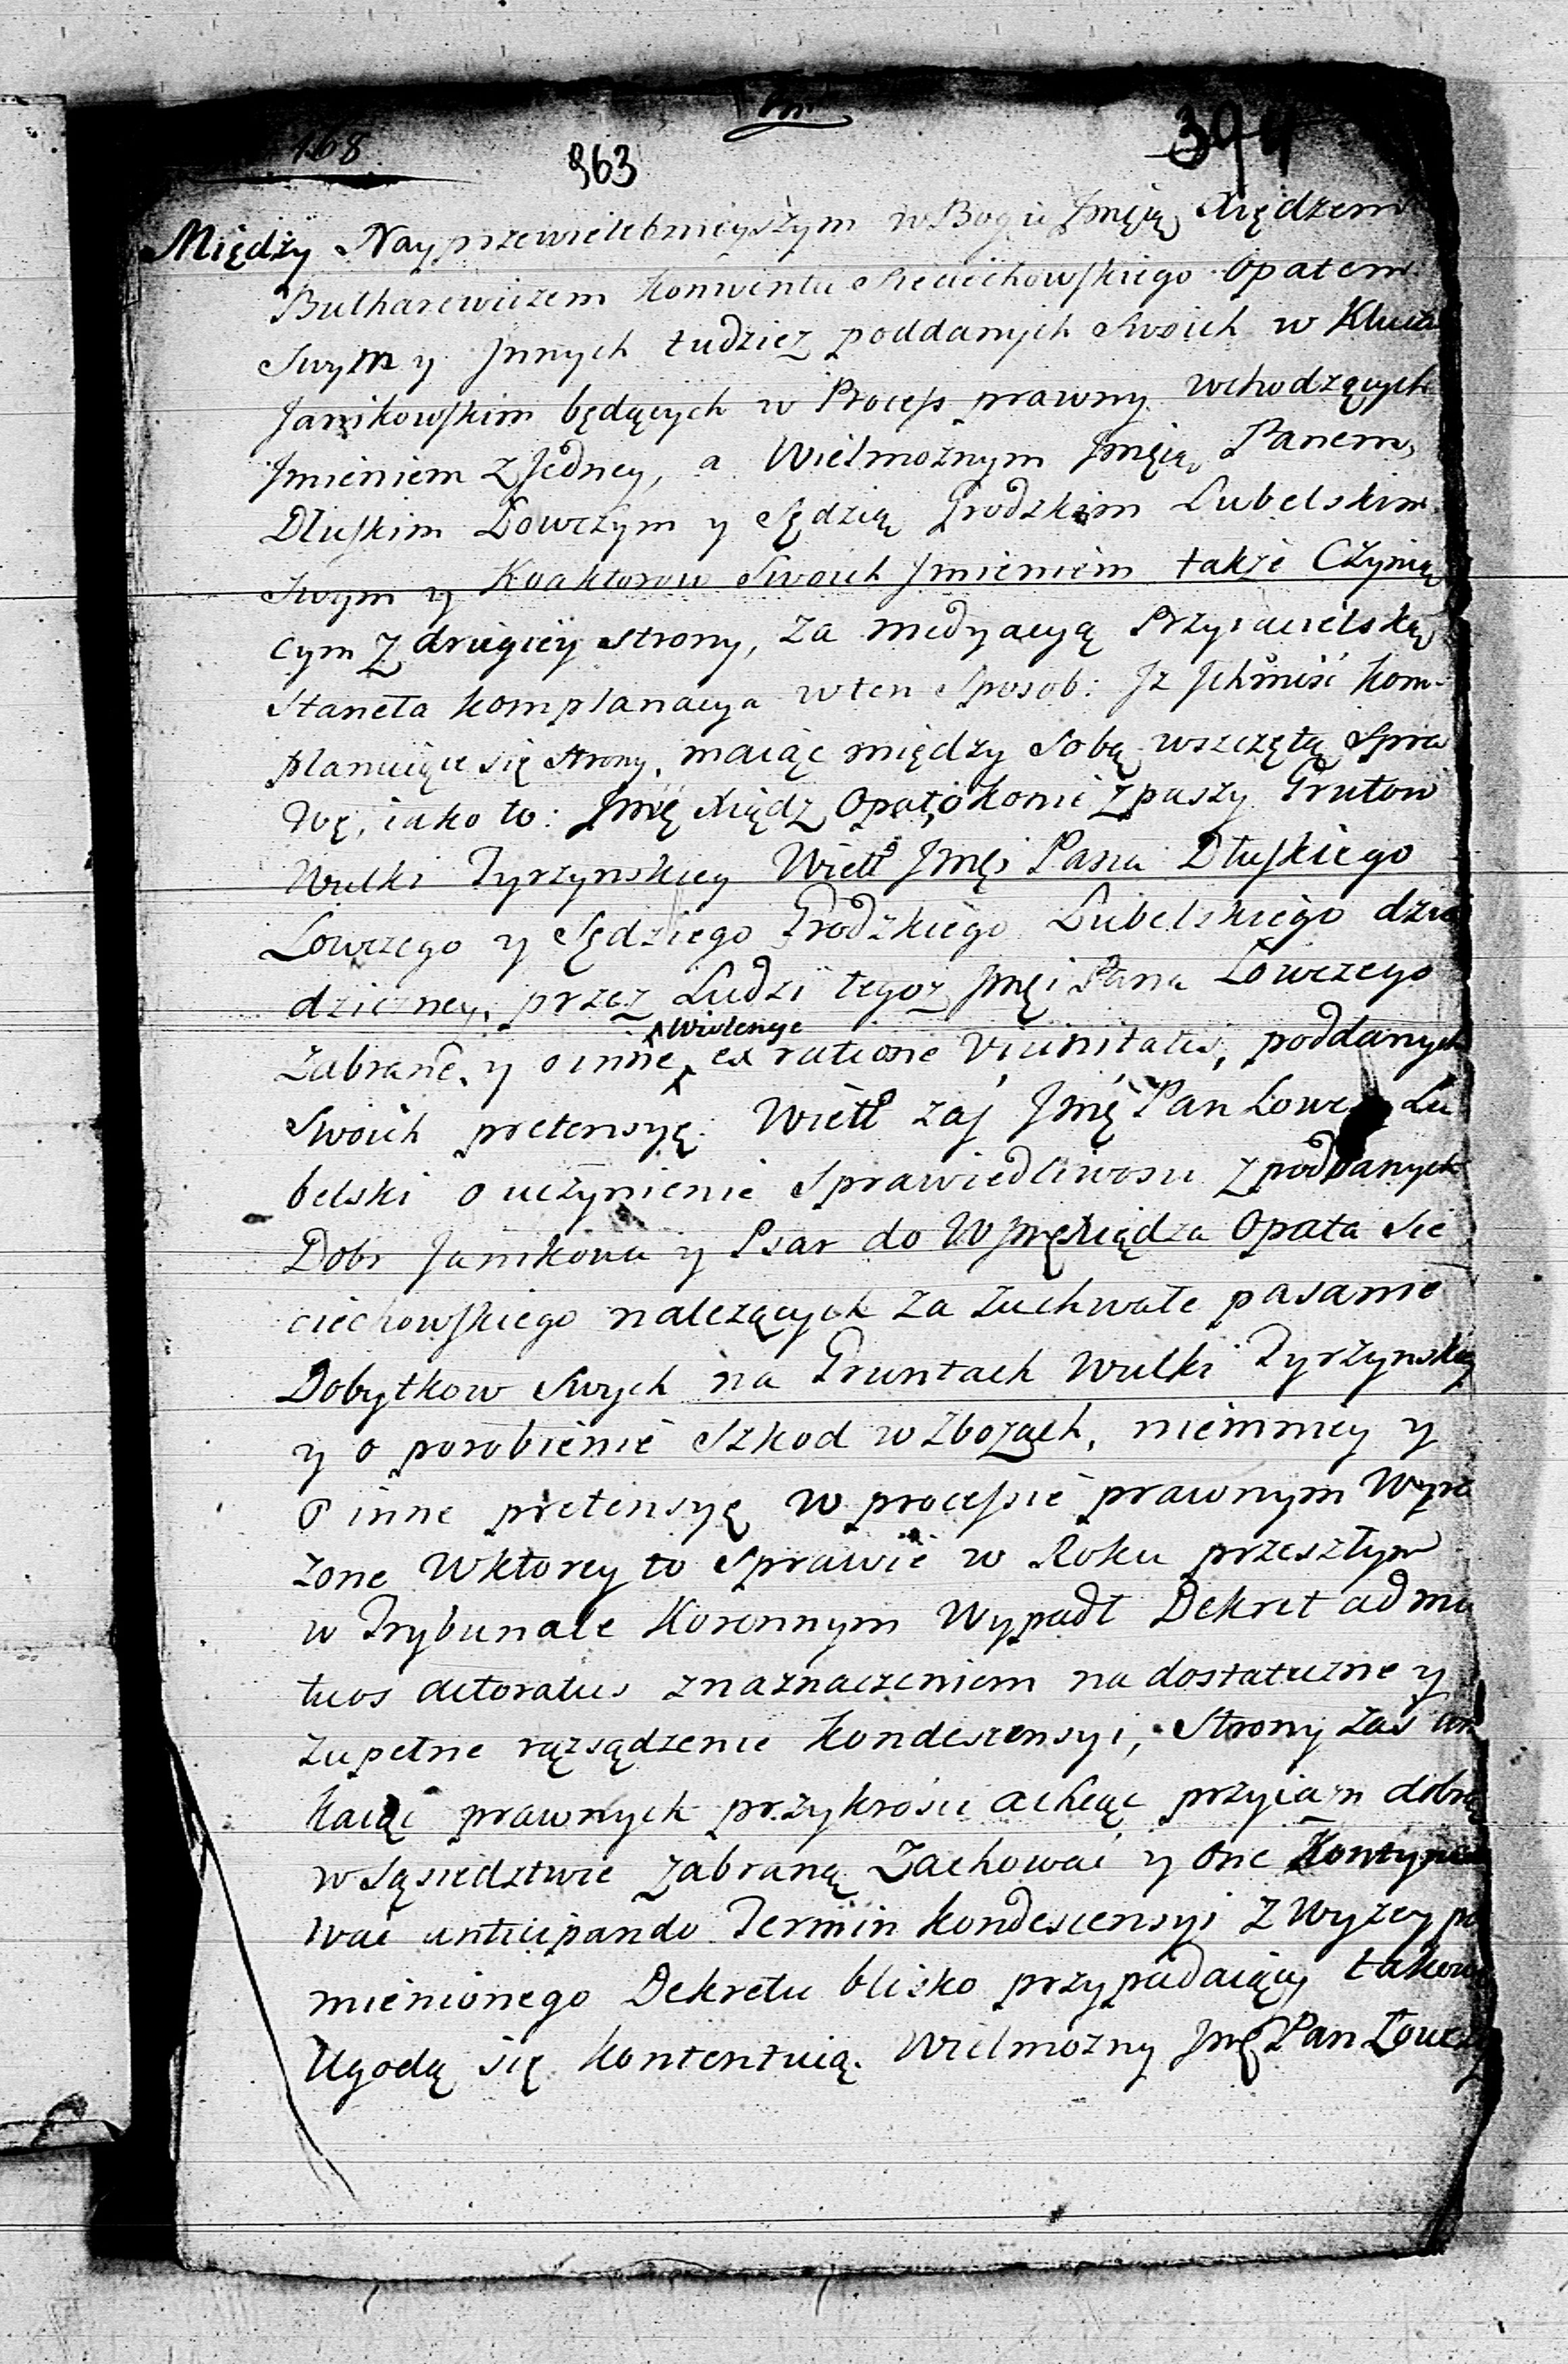 168 963 394
Między Nayprzewielebnieyszym w Bogu Jmścią Xiędzem
Butharewiczem Konwentu Sieciechowskiego Opatem
Swym y Jnnych tudziez poddanych Swoich w Kluczu
Janikowskim będących w Process prawny wchodzących
Jmieniem z Jedney, a Wielmoznym Jmścią Panem
Dłuskim Łowczym y Sędzią Grodzkim Lubelskim
Swym y Koaktorow Swoich Jmieniem takze Czynią
cym z drugiey strony, za medyacyą Przyiacielską
Staneła komplanacya w ten Sposob: Jz Jchmść kom-
planuiące się strony, maiąc między Sobą wszczętą Spra
wę, iako to: Jmć Xiądz Opat, o Konie z paszy Grutow
Wulki Tyrzynskiey Wielł Jmći Pana Dłuskiego
Łowczego y Sędziego Grodzkiego Lubelskiego dzie
dziczney, przez Ludzi tegoz Jmći Pana Łowczego
zabrane, y o inne Wiolencye ex ratione Vicinitatis, poddanych
Swoich pretensyę. Wielł zaś Jmć Pan Łowczy Lu
belski o uczynienie Sprawiedliwosci z poddanych
Dobr Janikowa y Psar do W Jmć Xiądza Opata Sie
ciechowskiego nalezących za zuchwałe pasanie
Dobytkow Swych na Gruntach Wulki Tyrzynskiey
y o porobienie Szkod w Zbozach, niemniey y
o inne pretensyę w processie prawnym Wyra
zone w ktorey to Sprawie w Roku przeszłym
w Trybunale Koronnym Wypadł Dekret ad mu
tuos actoratus z naznaczeniem na dostateczne y
zupełne rązsądzenie Kondescensyi, Strony zaś uni
kaiąc prawnych przykrości a chcąc przyiazn dobrą
w Sąsiedztwie zabraną Zachować y one Kontynuo
wać anticipando Termin kondescensyi z wyzey po
mienionego Dekretu blisko przypadaiący takową
Ugodą się kontentuią. Wielmozny Jmć Pan Łowczy